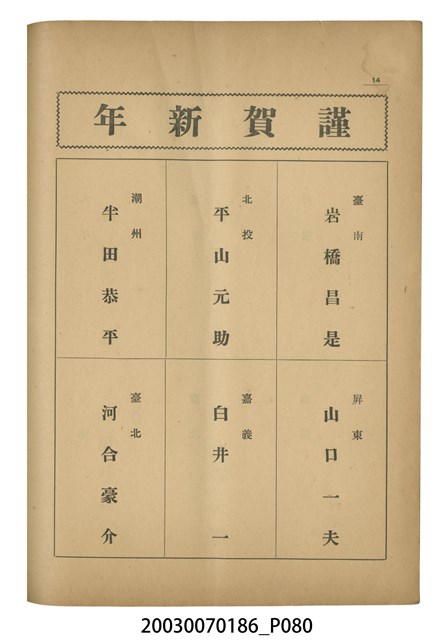 14
謹賀新年
臺南
岩橋昌是
北投
平山元助
潮州
半田恭平
屏東
山口一夫
嘉義
白井一
臺北
河合豪介
20030070186_P080